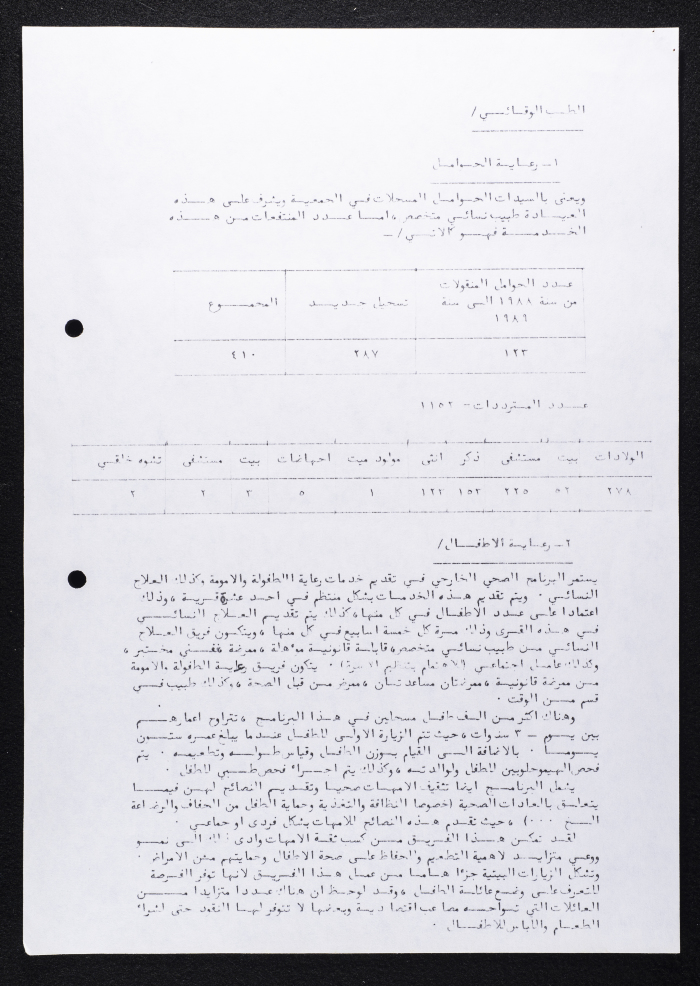 الطب الوقائي /
١- رعاية الحوامل
ويعنى بالسيدات الحوامل المسجلات في الجمعية ويشرف على هذه
العيادة طبيب نسائي متخصص ، اما عدد المنتفعات من هذه
الخدمة فهو كالاتي /-
عدد الحوامل المنقولات من سنة ١٩٨٨ الى سنة ١٩٨٩ تسجيل جديد المجموع
١٢٣ ٢٨٧ ٤١٠
عدد المترددات - ١١٥٢
الولادات بيت مستشفى ذكر انثى مولود ميت اجهاضات بيت مستشفى تشوه خلقي
٢٧٨ ٥٢ ٢٢٥ ١٥٢ ١٢٢ ١ ٥ ٣ ٢ ٢
٢- رعاية الاطفال /
يستمر البرنامج الصحي الخارجي في تقديم خدمات رعاية الطفولة والامومة وكذلك العلاج
النسائي . ويتم تقديم هذه الخدمات بشكل منتظم في احد عشر قرية ، وذلك
اعتمادا على عدد الاطفال في كل منها ، كذلك يتم تقديم العلاج النسائي
في هذه القرى وذلك مرة كل خمسة اسابيع في كل منها ، ويتكون فريق العلاج
النسائي من طبيب نسائي متخصص ، قابلة قانونية مؤهلة ، ممرضة ، فني مختبر ،
وكذلك عامل اجتماعي . يتكون فريق رعاية الطفولة والامومة
من ممرضة قانونية ، ممرضتان مساعدتان ، ممرض من قبل الصحة ، وكذلك طبيب في
قسم من الوقت .
وهناك اكثر من الف طفل مسجلين في هذا البرنامج ، تتراوح اعمارهم
بين يوم - ٣ سنوات ، حيث تتم الزيارة الاولى للطفل عندما يبلغ عمره ستون
يوما . بالاضافة الى القيام بوزن الطفل وقياس طوله وتطعيمه . يتم
فحص الهيموجلوبين للطفل ولوالدته ، وكذلك يتم اجراء فحص طبي للطفل .
يشمل البرنامج ايضا تثقيف الامهات صحيا وتقديم النصائح لهن فيما
يتعلق بالعادات الصحية (خصوصا النظافة والتغذية وحماية الطفل من الجفاف والرضاعة
الخ ...) ، حيث تقدم هذه النصائح للامهات بشكل فردي او جماعي .
لقد تمكن هذا الفريق من كسب ثقة الامهات وادى ذلك الى نمو
ووعي متزايد لاهمية التطعيم والحفاظ على صحة الاطفال وحمايتهم من الامراض .
وتشكل الزيارات البيتية جزءا هاما من عمل هذا الفريق لانها توفر الفرصة
للتعرف على وضع عائلة الطفل ، وقد لوحظ ان هناك عددا متزايدا من
العائلات التي تواجه مصاعب اقتصادية وبعضها لا تتوفر لها النقود حتى لشراء
الطعام واللباس للاطفال .